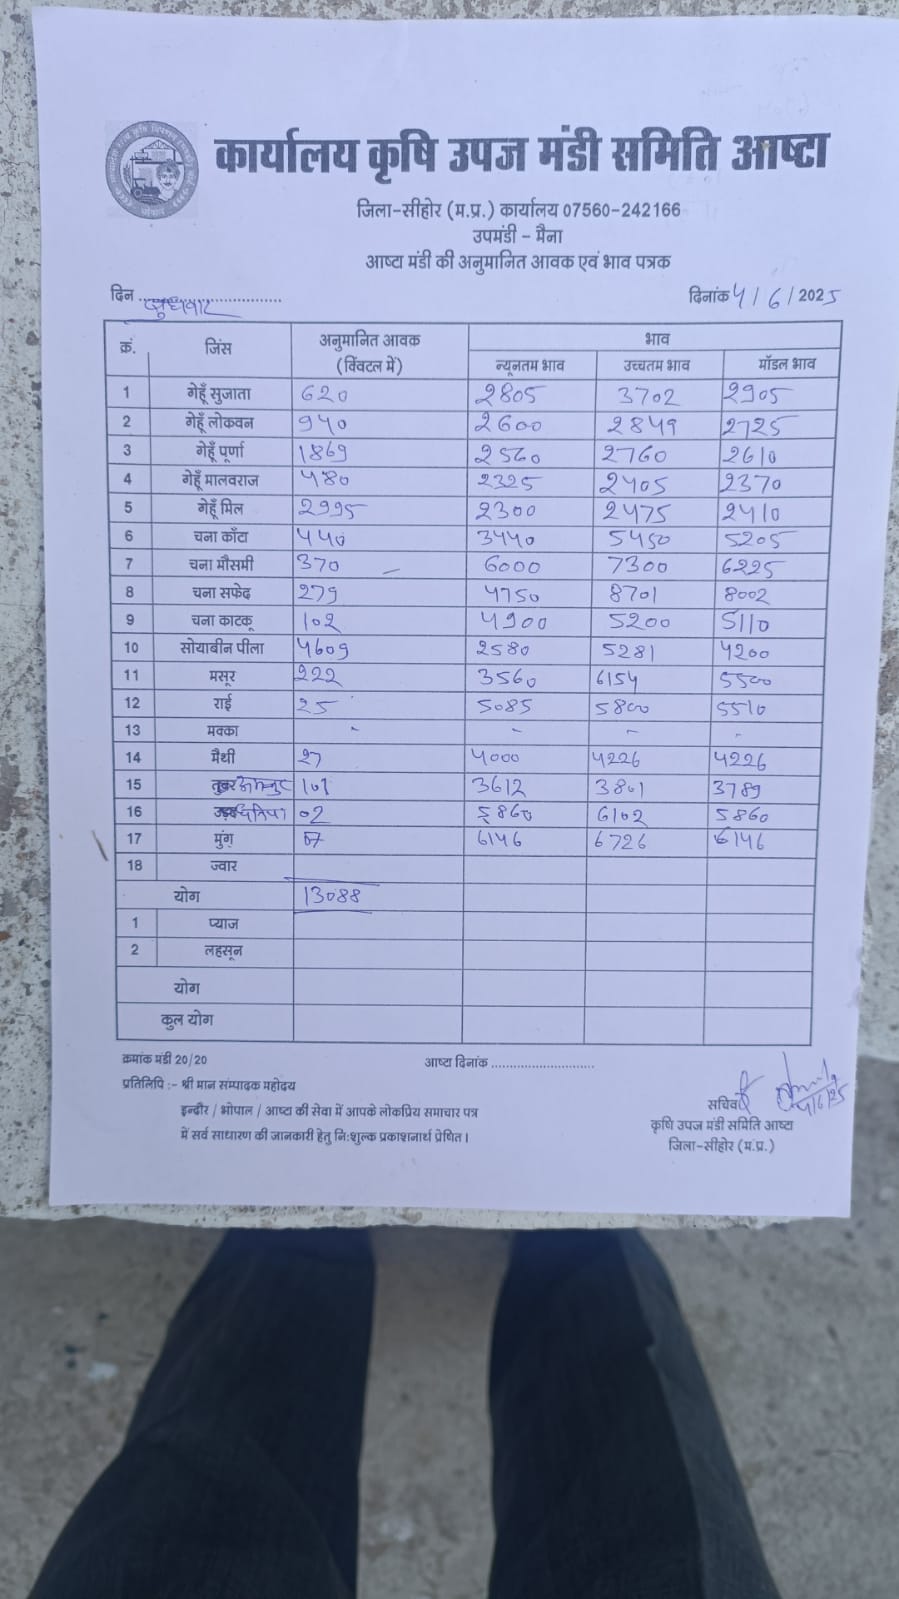 कार्यालय कृषि उपज मंडी समिति आष्टा
जिला-सीहोर (म.प्र.) कार्यालय 07560-242166
उपमंडी - मैना
आष्टा मंडी की अनुमानित आवक एवं भाव पत्रक
दिन बुधवार दिनांक 4/6/2025
क्रं. जिंस अनुमानित आवक (क्विंटल में) भाव
न्यूनतम भाव उच्चतम भाव मॉडल भाव
1 गेहूँ सुजाता 620 2805 3702 2905
2 गेहूँ लोकवन 940 2600 2849 2725
3 गेहूँ पूर्णा 1869 2560 2760 2610
4 गेहूँ मालवराज 480 2325 2405 2370
5 गेहूँ मिल 2995 2300 2475 2410
6 चना काँटा 440 3440 5450 5205
7 चना मौसमी 370 6000 7300 6225
8 चना सफेद 279 4750 8701 8002
9 चना काटकू 102 4900 5200 5110
10 सोयाबीन पीला 4609 2580 5281 4200
11 मसूर 222 3560 6154 5500
12 राई 25 5085 5800 5510
13 मक्का - - - -
14 मैथी 27 4000 4226 4226
15 101 3612 3801 3789
16 02 5860 6102 5860
17 मुंग 07 6146 6726 6146
18 ज्वार
योग 13088
1 प्याज
2 लहसून
योग
कुल योग
क्रमांक मंडी 20/20 आष्टा दिनांक ............................
प्रतिलिपि :- श्री मान सम्पादक महोदय
इन्दौर / भोपाल / आष्टा की सेवा में आपके लोकप्रिय समाचार पत्र
में सर्व साधारण की जानकारी हेतु निःशुल्क प्रकाशनार्थ प्रेषित।
सचिव 4/6/25
कृषि उपज मंडी समिति आष्टा
जिला-सीहोर (म.प्र.)